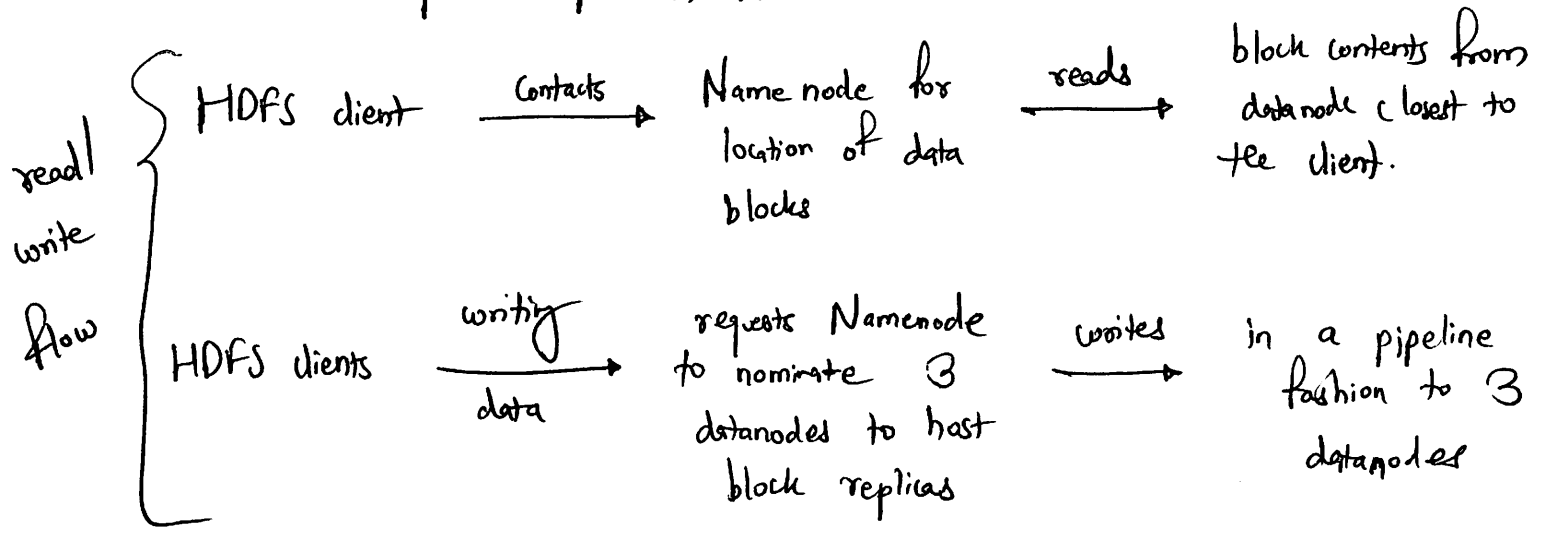 read/
write
flow
HDFS client
Contacts
Name node for
location of data
blocks
reads
block contents from
datanode closest to
the client.
HDFS clients
writing
data
requests Namenode
to nominate 3
datanodes to host
block replicas
writes
in a pipeline
fashion to 3
datanodes